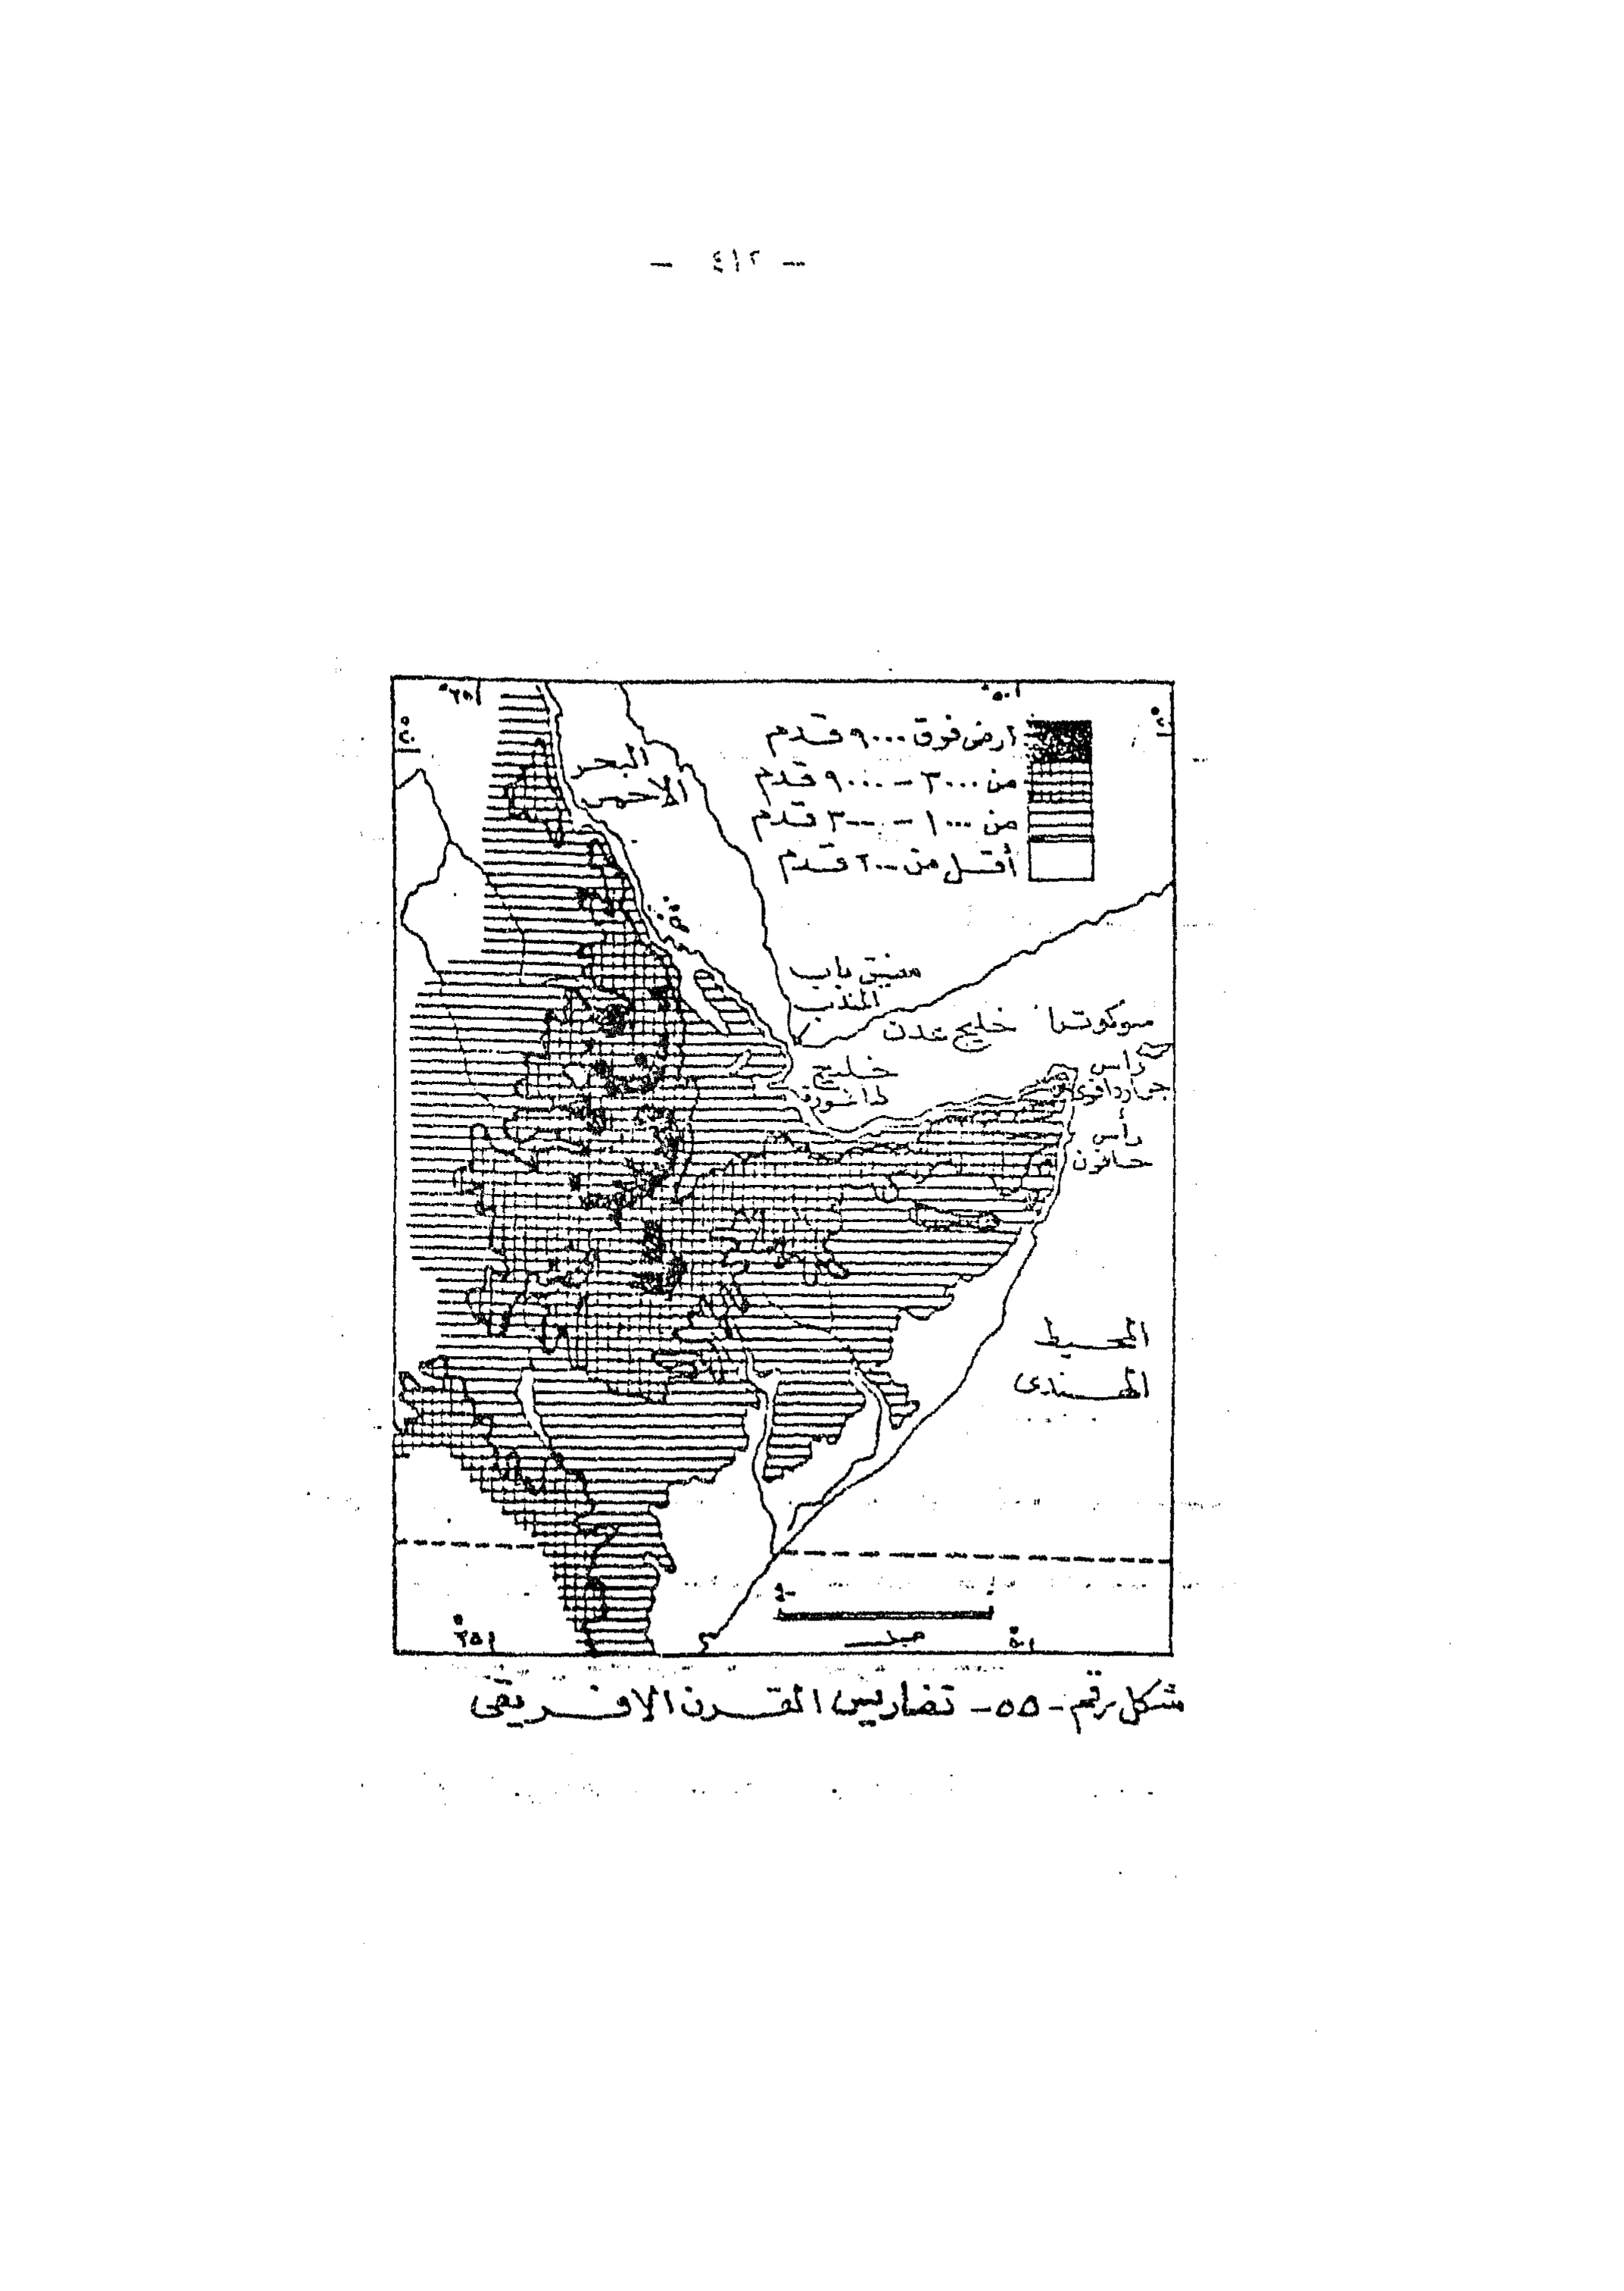 - ٤١٢ -
ارض فوق ٩٠٠٠ قدم
من ٣٠٠٠ - ٩٠٠٠ قدم
من ١٠٠٠ - ٣٠٠٠ قدم
أقل من
قدم
البحر
الاحمر
مضيق باب
المندب
خليج عدن
سوكوتها
خليج
رأس
جماردافوى
رأس
حافون
المحيط
الهندى
ميل
شكل رقم - ٥٥ - تضاريس القرن الافريقى